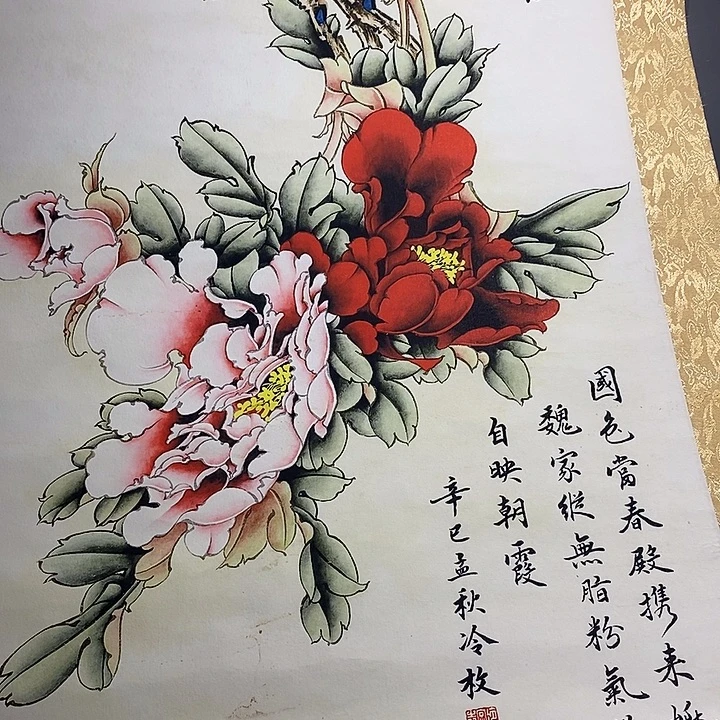 國色當春殿携来
魏家縱無脂粉氣
自映朝霞
辛巳孟秋冷枚